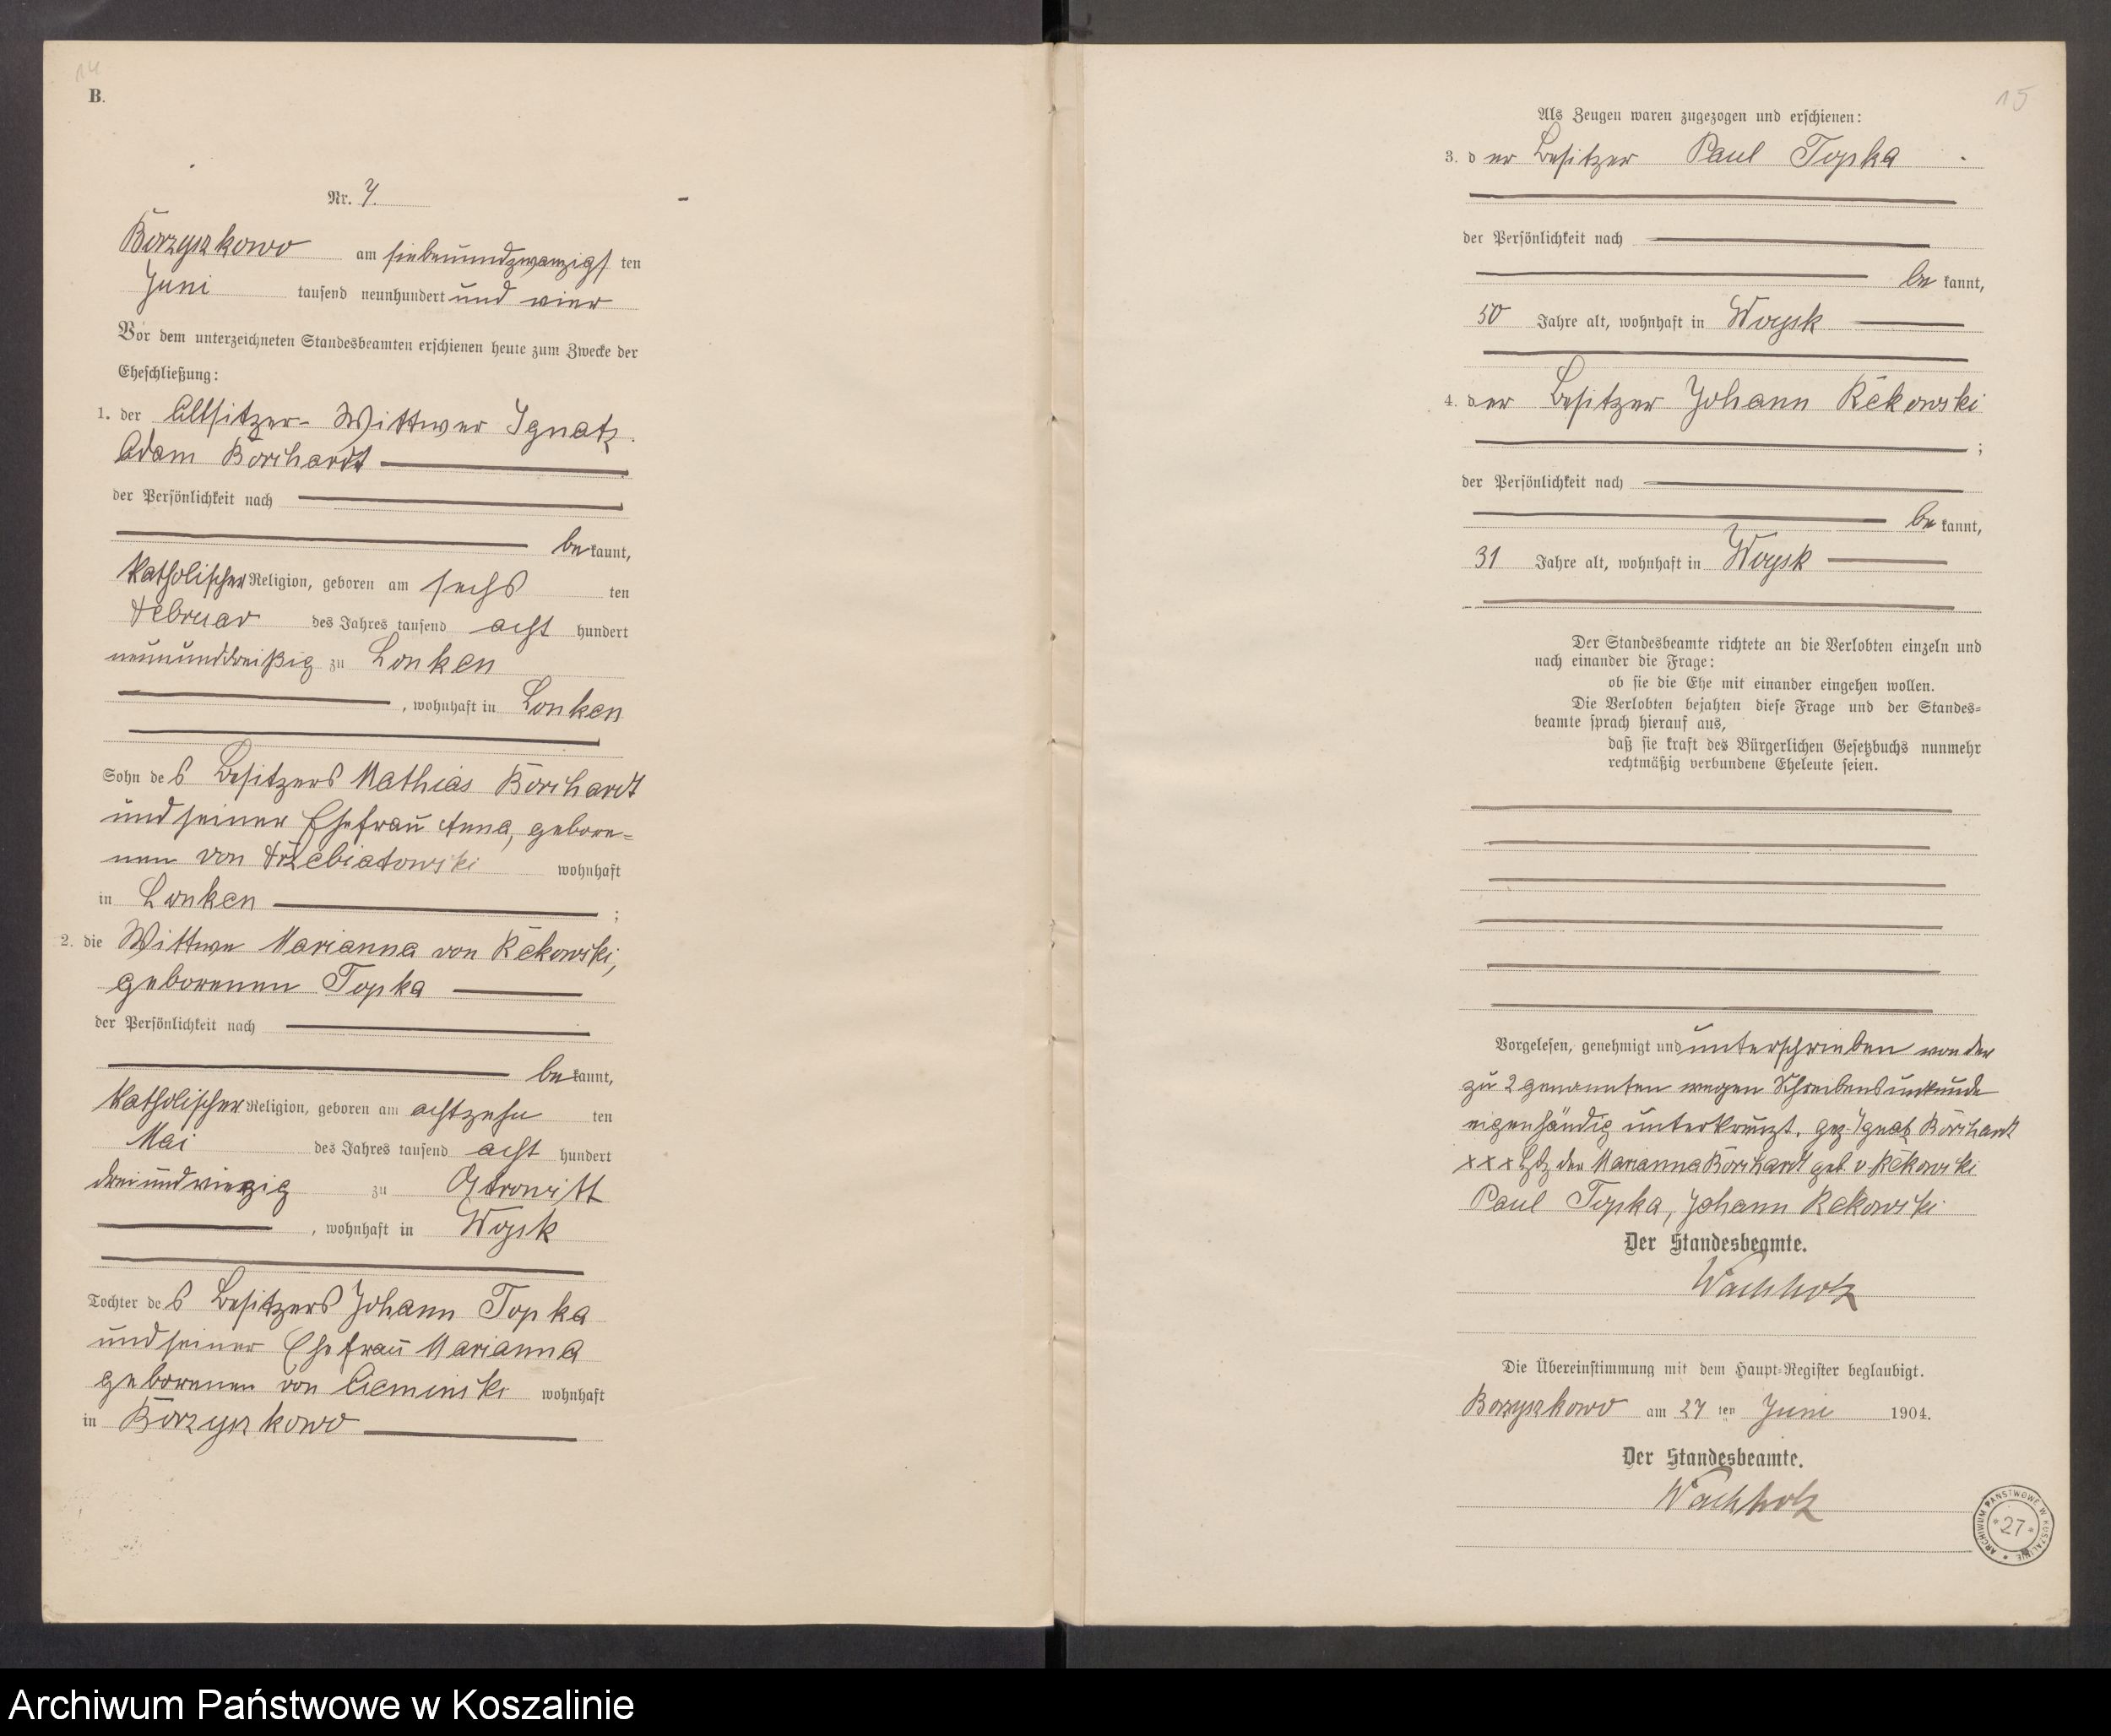 14
B.
Nr. 7.
Borzyszkowo am siebenundzwanzigsten
Juni tausend neunhundert und vier
Vor dem unterzeichneten Standesbeamten erschienen heute zum Zwecke der
Eheschließung:
1. der Altsitzer-Wittwer Ignatz
Adam Borchardt
der Persönlichkeit nach
be kannt,
katholischer Religion, geboren am sechs ten
Februar des Jahres tausend acht hundert
neununddreißig zu Lonken
, wohnhaft in Lonken
Sohn des Besitzers Mathias Borchardt
und seiner Ehefrau Anna, gebore=
nen von Trzebiatowski wohnhaft
in Lonken ;
2. die Wittwe Marianna von Rekowski,
geborenen Topka
der Persönlichkeit nach
be kannt,
katholischer Religion, geboren am achtzehn ten
Mai des Jahres tausend acht hundert
dreiundvierzig zu Ostrowitt
, wohnhaft in Woysk
Tochter des Besitzers Johann Topka
und seiner Ehefrau Marianna
geborenen von Cieminski wohnhaft
in Borzyszkowo
15
Als Zeugen waren zugezogen und erschienen:
3. der Besitzer Paul Topka
der Persönlichkeit nach
be kannt,
50 Jahre alt, wohnhaft in Woysk
4. der Besitzer Johann Rekowski
;
der Persönlichkeit nach
be kannt,
31 Jahre alt, wohnhaft in Woysk
Der Standesbeamte richtete an die Verlobten einzeln und
nach einander die Frage:
ob sie die Ehe mit einander eingehen wollen.
Die Verlobten bejahten diese Frage und der Standes=
beamte sprach hierauf aus,
daß sie kraft des Bürgerlichen Gesetzbuchs nunmehr
rechtmäßig verbundene Eheleute seien.
Vorgelesen, genehmigt und unterschrieben von der
zu 2 genannten wegen Schreibensunkunde
eigenhändig unterkreuzt. gez. Ignatz Borchardt
xxx Hdz der Marianna Borchardt geb. v Rekowski
Paul Topka, Johann Rekowski
Der Standesbeamte.
Wachholz
Die Übereinstimmung mit dem Haupt=Register beglaubigt.
Borzyszkowo am 27 ten Juni 1904.
Der Standesbeamte.
Wachholz
ARCHIWUM PAŃSTWOWE W KOSZALINIE
* 27 *
Archiwum Państwowe w Koszalinie